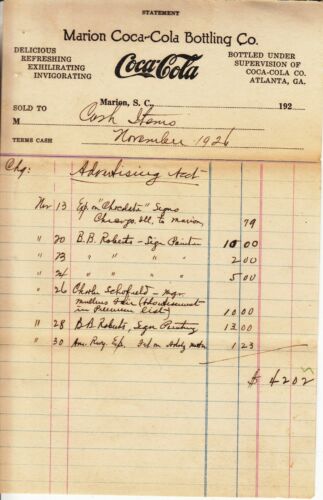 STATEMENT
Marion Coca-Cola Bottling Co.
DELICIOUS
REFRESHING
EXHILIRATING
INVIGORATING
Coca-Cola
BOTTLED UNDER
SUPERVISION OF
COCA-COLA CO.
ATLANTA, GA.
Marion, S. C., 192
SOLD TO
M Cash Items
TERMS CASH November 1926
Chg: Advertising Act
Nov 13 Exp on "Chocolate" Signs
Chicago Ill. to Marion, 79
" 20 B.B. Roberts - Sign Painter 10 00
" 23 " " " " 2 00
" 24 " " " " 5 00
" 26 Charles Schofield - Mgr.
Mullins Fair (Advertisement
in Premium List) 10 00
" 28 B.B. Roberts, Sign Painting 13 00
" 30 Am. Rwy. Exp. on Advtg 1 23
$ 42 02